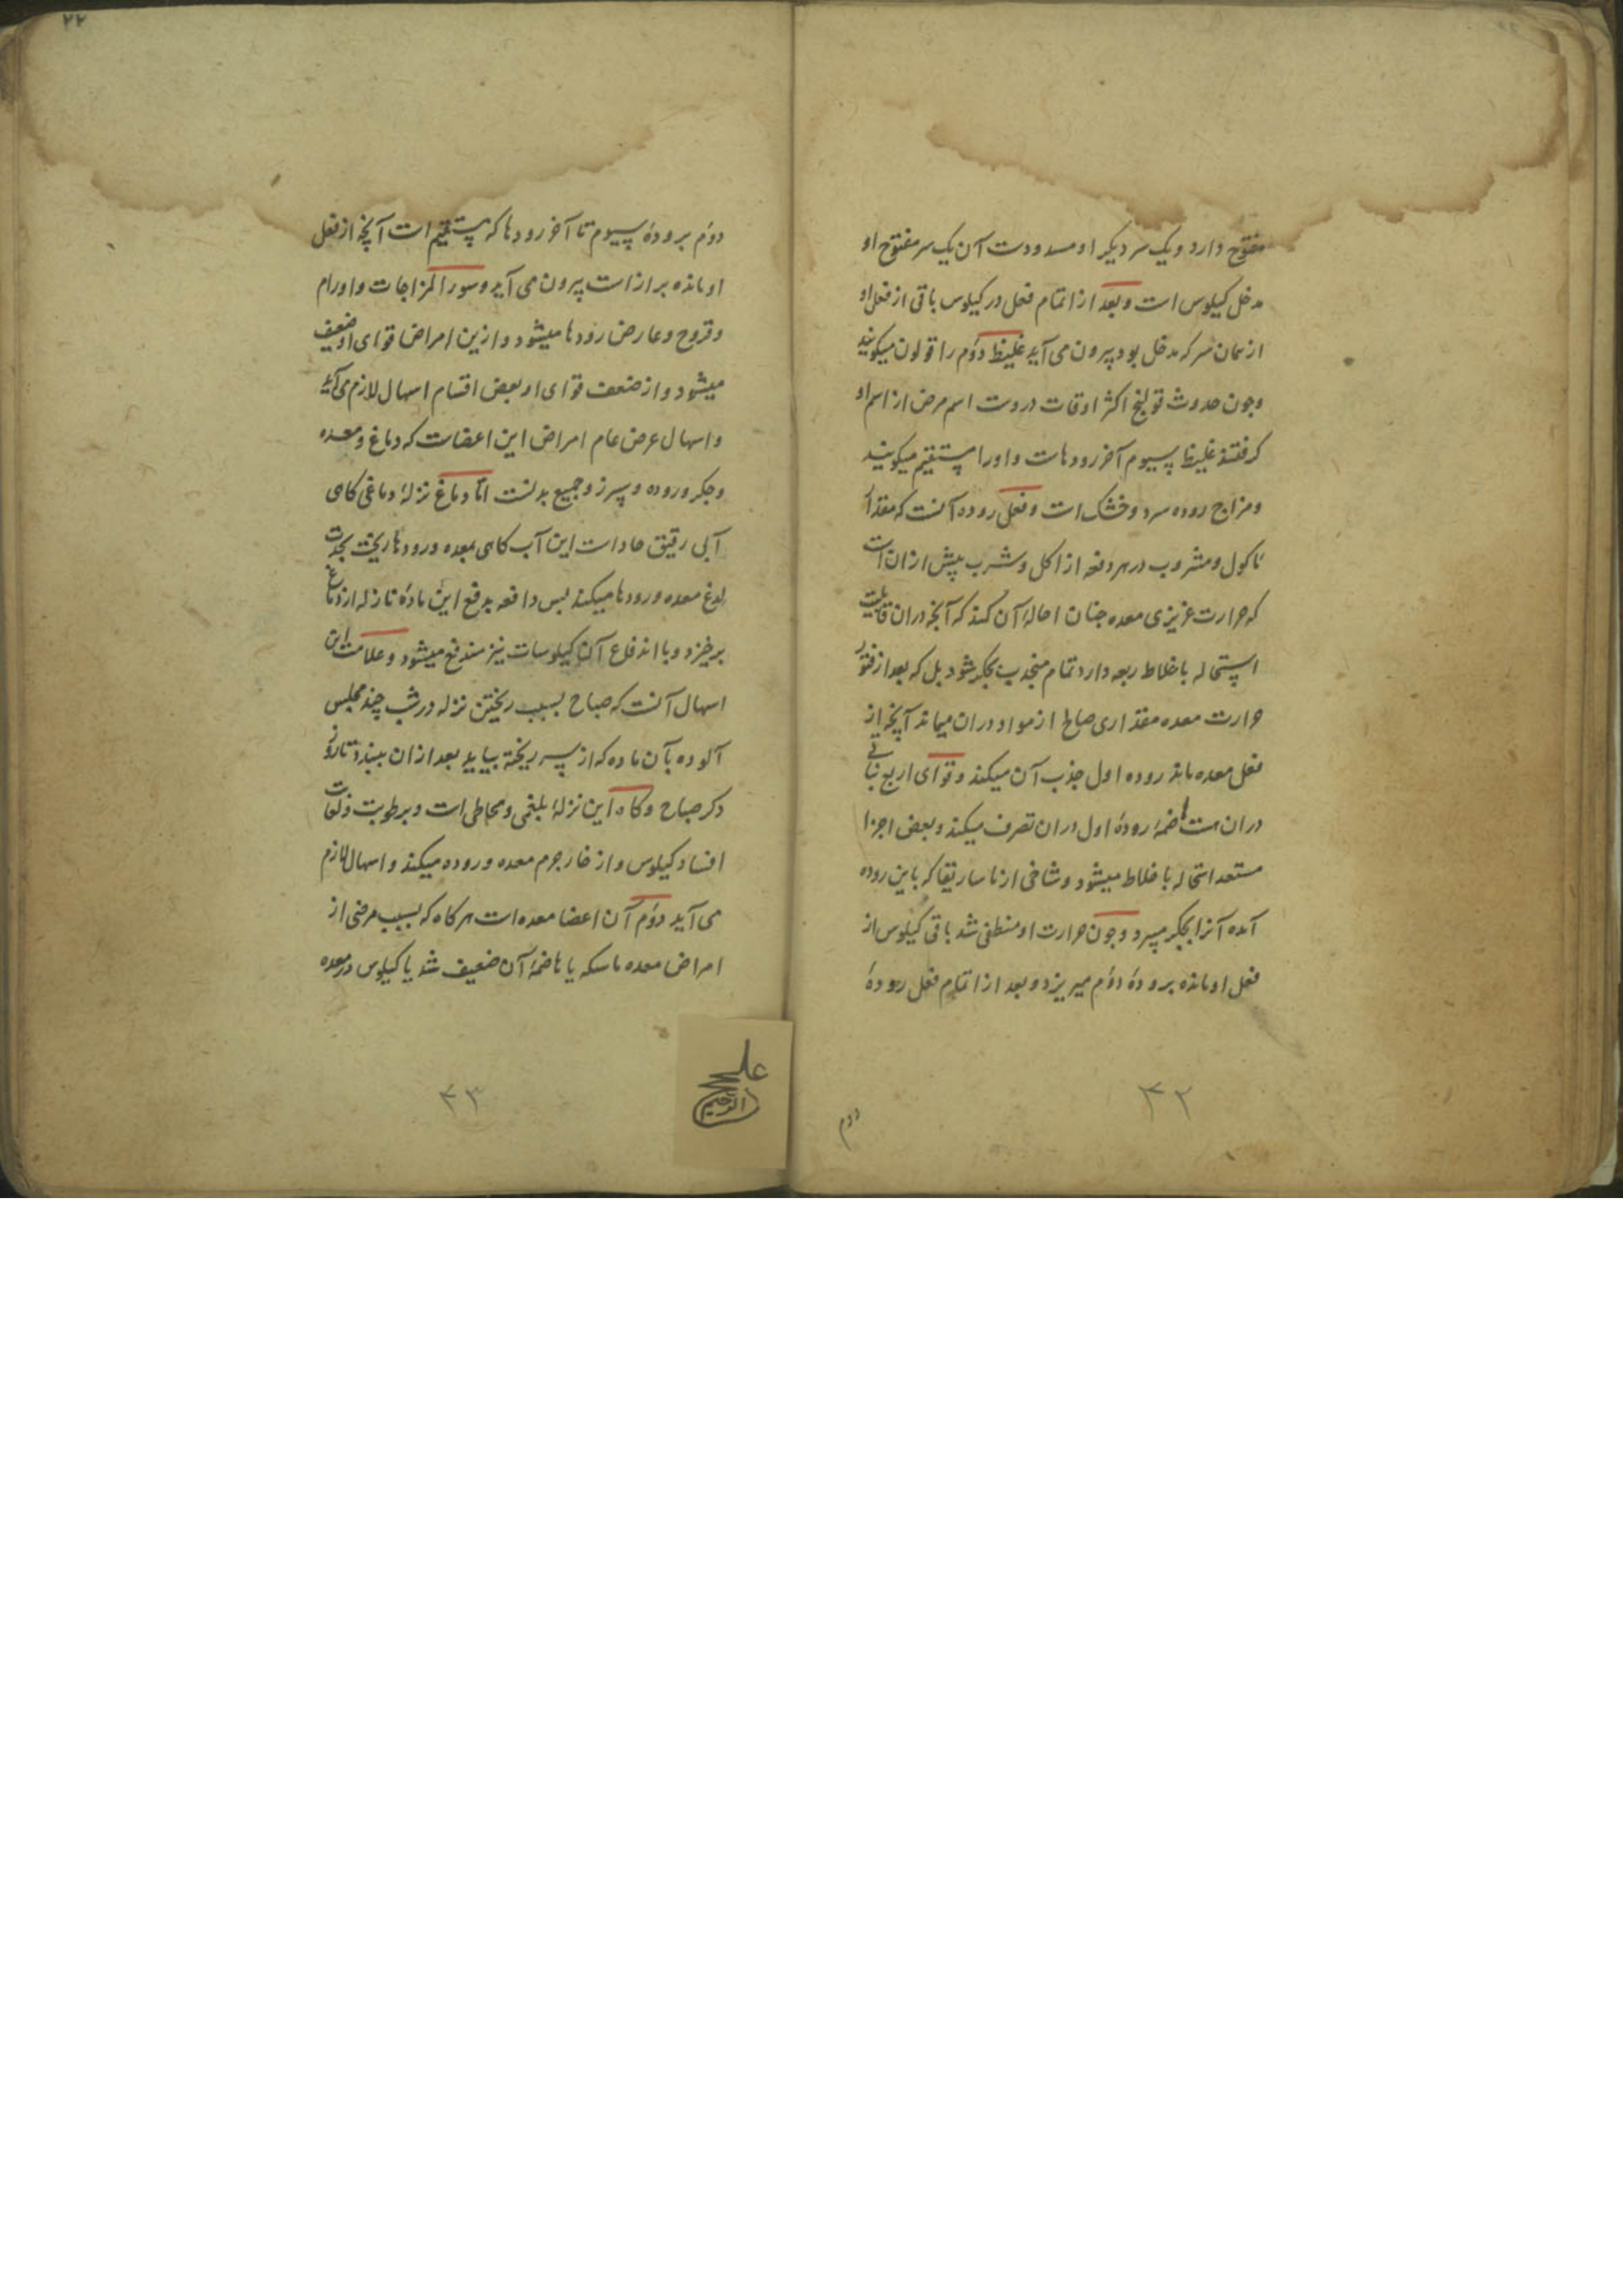 مفتوح دارد و یک سر دیکر او مسدودست آن یک سر مفتوح او
مدخل کیلوس است و بعد از اتمام فعل در کیلوس باقی از فعل او
از همان سر که مدخل بود بیرون می آید غلیظ دوم را قولون میکویند
و چون حدوث قولنج اکثر اوقات دروست اسم مرض از اسم او
کرفتند غلیظ سیوم آخر رودهاست و او را مستقیم میکویند
و مزاج روده سرد و خشک است و فعل روده آنست که مقدار
ماکول و مشروب در هر دفعه از اکل و شرب بیش ازان است
که حرارت غریزی معده چنان احالۀ آن کند که آنچه دران قابلیت
استحاله باخلاط ربعه دارد تمام منجذب بجکر شود بل که بعد از فتور
حرارت معده مقداری صالح از مواد دران میماند آنچه از
فعل معده ماند روده اول جذب آن میکند و قوای اربع نباتی
دران هست هاضمۀ رودۀ اول دران تصرف میکند و بعض اجزا
مستعد استحاله باخلاط میشود و شاخی از ماساریقا که باین روده
آمده آنرا بجکر میبرد و چون حرارت او منطفی شد باقی کیلوس از
فعل او مانده برودۀ دوم میریزد و بعد از اتمام فعل رودۀ
دوم
۴۲
۲۲
دوم برودۀ سیوم تا آخر رودها که مستقیم است آنچه از فعل
او مانده براز است بیرون می آید و سوء المزاجات و اورام
و قروح و عارض رودها میشود و ازین امراض قوای او ضعیف
میشود و از ضعف قوای او بعض اقسام اسهال لازم می آید
و اسهال عرض عام امراض این اعضاست که دماغ و معده
و جکر و روده و سپرز و جمیع بدنست اما دماغ نزلۀ دماغی کاهی
آبی رقیق حاد است این آب کاهی بمعده و رودها ریخت بحدت
لدغ معده و رودها میکند پس دافعه بدفع این مادۀ نازله از دماغ
برخیزد و با اندفاع آن کیلوسات نیز مندفع میشود و علامت این
اسهال آنست که صباح بسبب ریختن نزله در شب چند مجلس
آلوده بآن ماده که از سر ریخته بیاید بعد ازان ببندد تا روز
دکر صباح و کاه این نزلۀ بلغمی و مخاطی است و برطوبت و لعاب
افساد کیلوس و ارخاء جرم معده و روده میکند و اسهال لازم
می آید دوم آن اعضا معده است هرکاه که بسبب مرضی از
امراض معده ماسکه یا هاضمۀ آن ضعیف شد یا کیلوس در معده
علی
الرحیم
۴۳